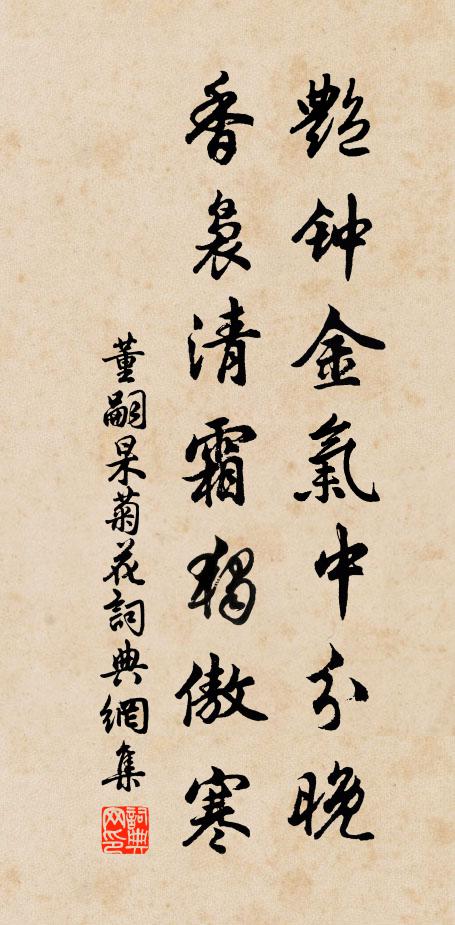 艷钟金氣中分晚
香裊清霜獨傲寒
董嗣杲菊花詞典網集
詞典网印